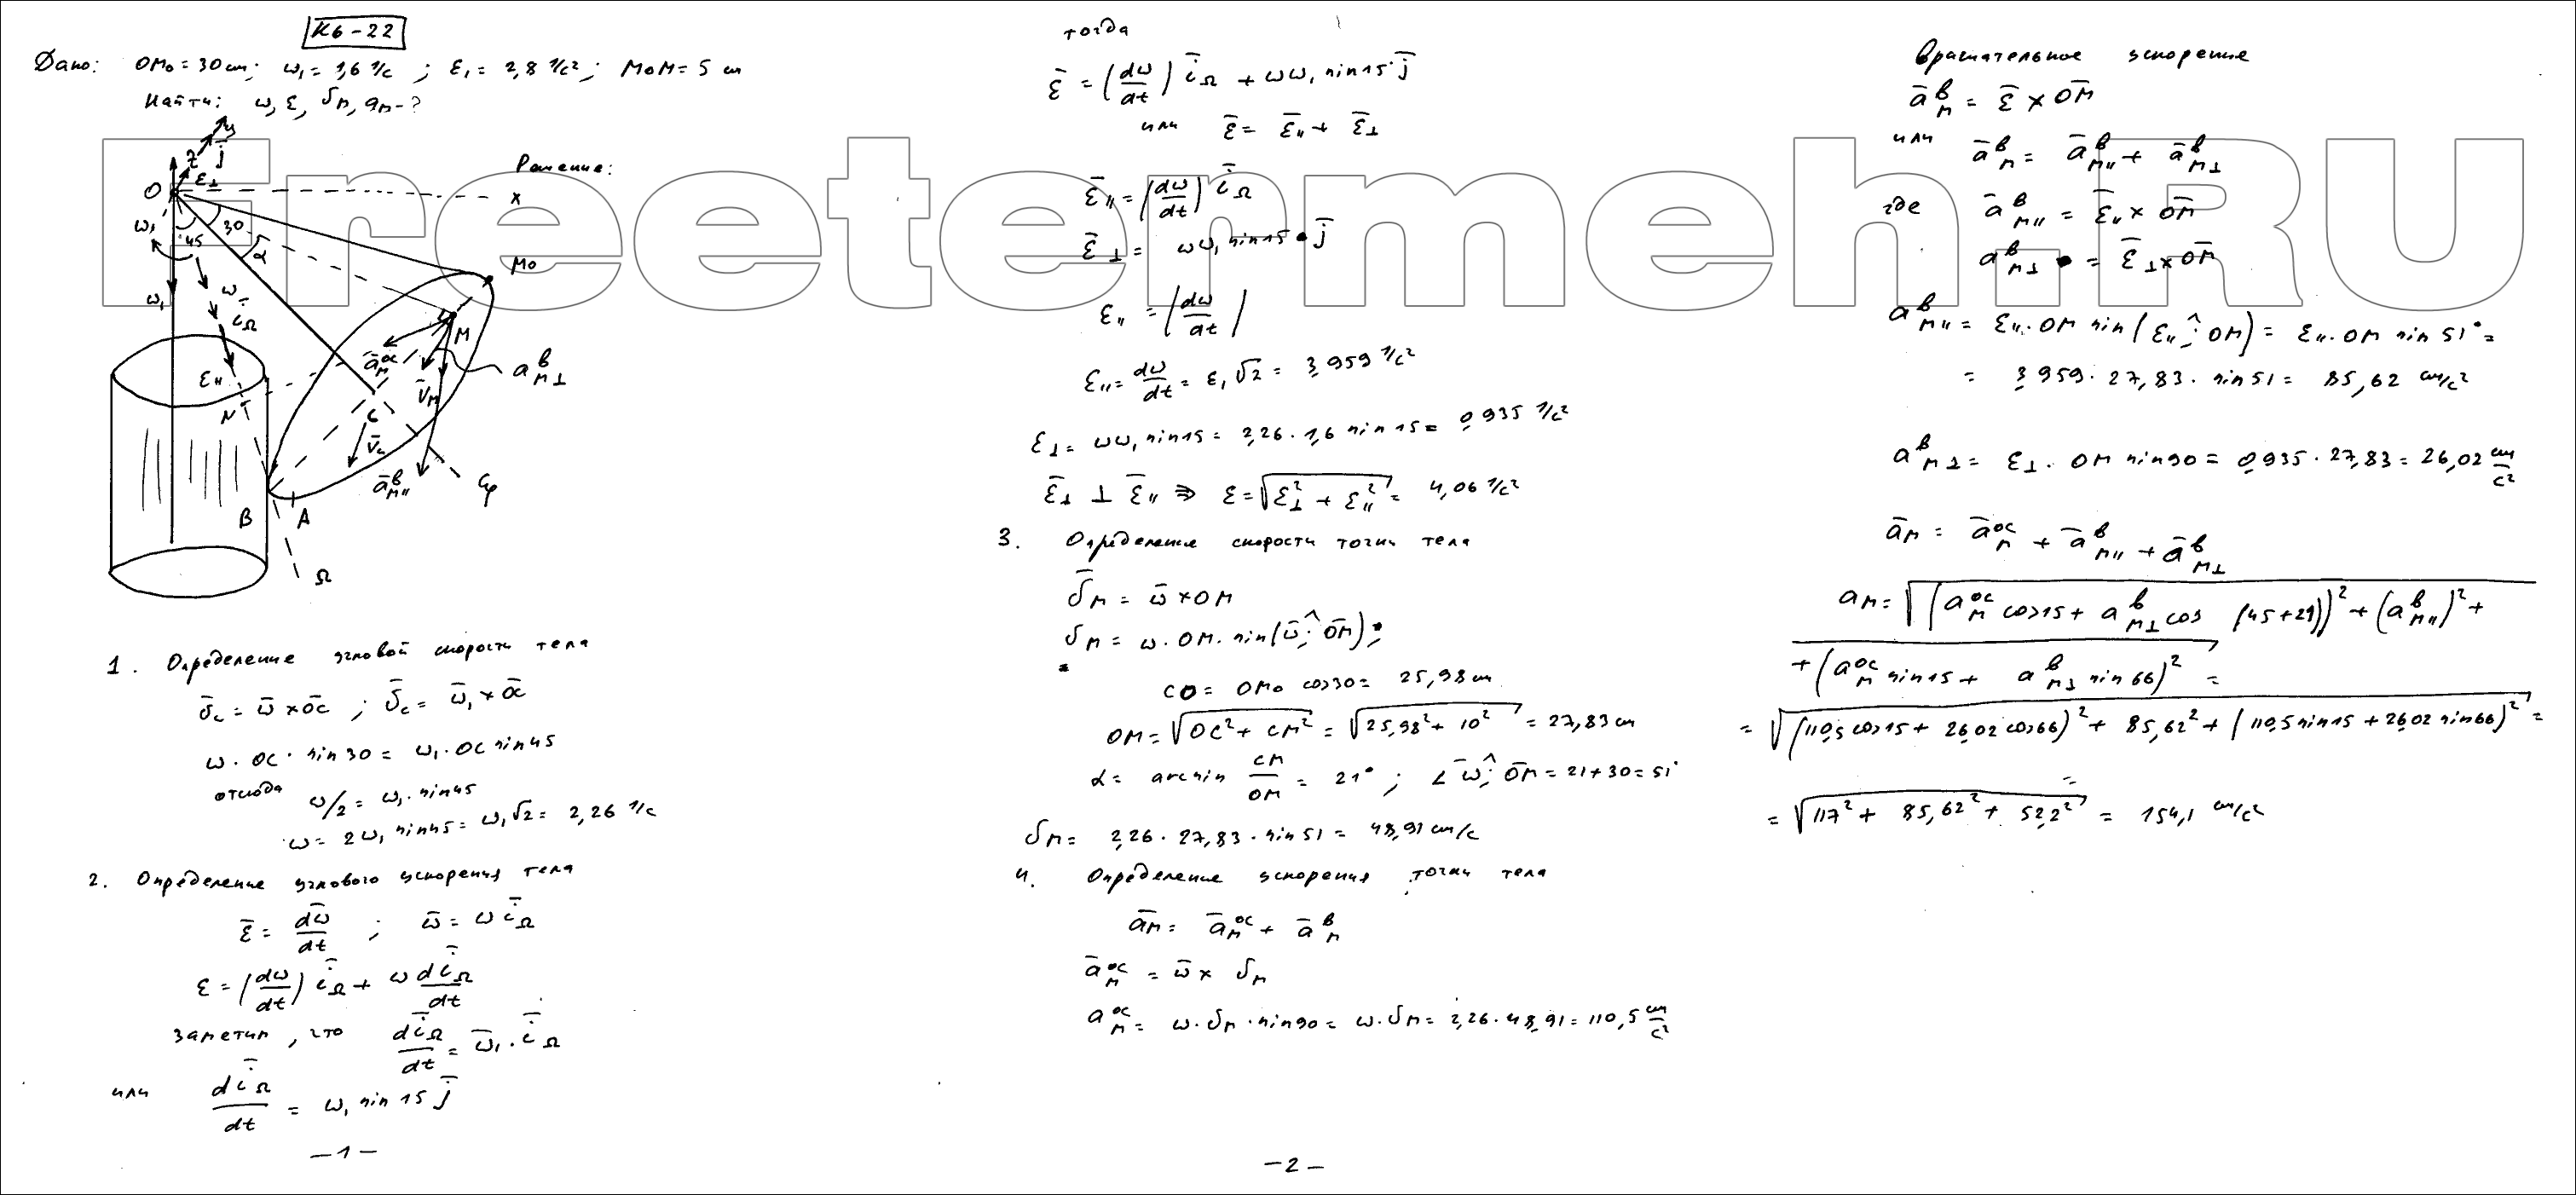 К6-22
Дано: OM₀ = 30 см; ω₁ = 1,6 1/с; ε₁ = 2,8 1/с²; M₀M = 5 см
Найти: ω, ε, υ_M, a_M - ?
Решение:
y
z j̄
O ε⊥
x
ω₁ 45 30
α
M₀
ω₁ ω̄
ī_Ω
M
ā_M^ос
a_M⊥^в
ε_∥
V̄_M
N
C
V̄_c
ā_M∥^в
φ
B A
Ω
1. Определение угловой скорости тела
ῡ_c = ω̄ × ŌC ; ῡ_c = ω̄₁ × ŌC
ω · OC · sin30 = ω₁ · OC sin45
отсюда ω/2 = ω₁ · sin45
ω = 2ω₁ sin45 = ω₁√2 = 2,26 1/с
2. Определение углового ускорения тела
ε̄ = dω̄/dt ; ω̄ = ω ī_Ω
ε = (dω/dt) ī_Ω + ω dī_Ω/dt
заметим, что dī_Ω/dt = ω̄₁ · ī_Ω
или dī_Ω/dt = ω₁ sin15 j̄
- 1 -
тогда
ε̄ = (dω/dt) ī_Ω + ωω₁ sin15° j̄
или ε̄ = ε̄_∥ + ε̄_⊥
ε̄_∥ = (dω/dt) ī_Ω
ε̄_⊥ = ωω₁ sin15 · j̄
ε_∥ = |dω/dt|
ε_∥ = dω/dt = ε₁√2 = 3,959 1/с²
ε_⊥ = ωω₁ sin15 = 2,26 · 1,6 sin15 = 0,935 1/с²
ε̄_⊥ ⊥ ε̄_∥ ⇒ ε = √(ε_⊥² + ε_∥²) = 4,06 1/с²
3. Определение скорости точки тела
ῡ_M = ω̄ × OM
υ_M = ω · OM · sin(ω̄;^ŌM);
CO = OM₀ cos30 = 25,98 см
OM = √(OC² + CM²) = √(25,98² + 10²) = 27,83 см
α = arcsin CM/OM = 21° ; ∠ω̄;^ŌM = 21+30 = 51°
υ_M = 2,26 · 27,83 · sin51 = 48,91 см/с
4. Определение ускорения точки тела
ā_M = ā_M^ос + ā_M^в
ā_M^ос = ω̄ × υ_M
a_M^ос = ω · υ_M · sin90 = ω · υ_M = 2,26 · 48,91 = 110,5 см/с²
- 2 -
Вращательное ускорение
ā_M^в = ε̄ × ŌM
или ā_M^в = ā_M∥^в + ā_M⊥^в
где ā_M∥^в = ε̄_∥ × ŌM
a_M⊥^в = ε̄_⊥ × ŌM
a_M∥^в = ε_∥ · OM sin(ε_∥;^OM) = ε_∥ · OM sin51° =
= 3,959 · 27,83 · sin51 = 85,62 см/с²
a_M⊥^в = ε_⊥ · OM sin90 = 0,935 · 27,83 = 26,02 см/с²
ā_M = ā_M^ос + ā_M∥^в + ā_M⊥^в
a_M = √((a_M^ос cos15 + a_M⊥^в cos (45+21))² + (a_M∥^в)² +
+ (a_M^ос sin15 + a_M⊥^в sin66)²) =
= √((110,5 cos15 + 26,02 cos66)² + 85,62² + (110,5 sin15 + 26,02 sin66)²) =
= √(117² + 85,62² + 52,2²) = 154,1 см/с²
Freetermeh.RU